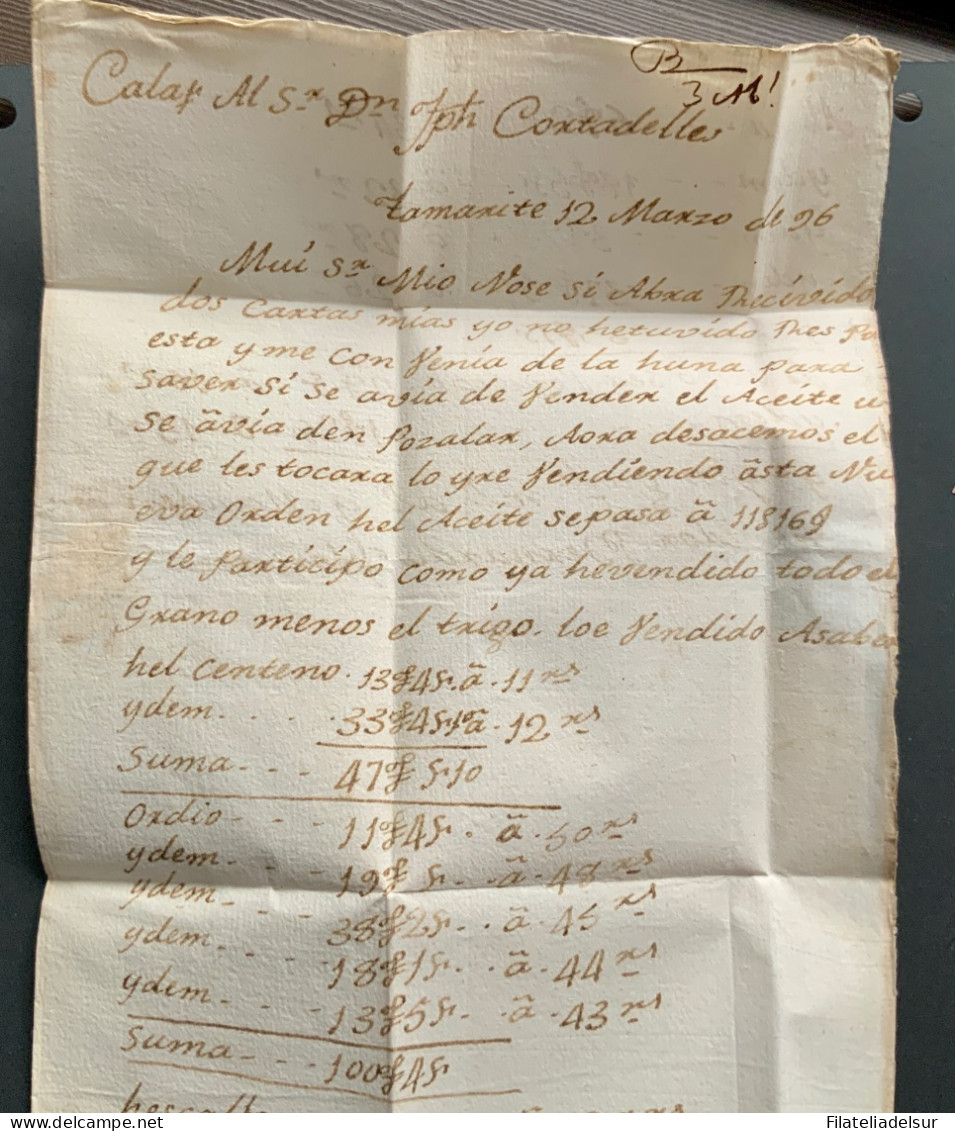 B
3 M!
Calaf Al Sr. Dn Jph Cortadelles
tamarite 12 Marzo de 96
Mui Sr. Mio Nose si Abra Recivido
dos Cartas mias yo no hetuvido Res
esta y me con Venia de la huna para
saver si se avia de Vender el Aceite u
se ãvia den Pozalar, Aora desacemos el
que les tocara lo yre Vendiendo ãsta Nu
eva Orden hel Aceite sepasa ã
y le Participo como ya hevendido todo el
Grano menos el trigo. loe Vendido Asaber
hel Centeno. 13 f 4 f. ã. 11 rs
ydem. . . . . 33 f 4 f 10 ã. 12 rs
Suma - - - 47 f f 10
Ordio - - - 11 f 4 f. ã. 50 rs
ydem. - - - 19 f f. . ã. 48 rs
ydem - - - 38 f 2 f. . ã. 45 rs
ydem. - - - 18 f 1 f. . ã. 44 rs
ydem - - - 13 f 5 f. . ã. 43 rs
Suma - - - 100 f 4 f
Filateliadelsur